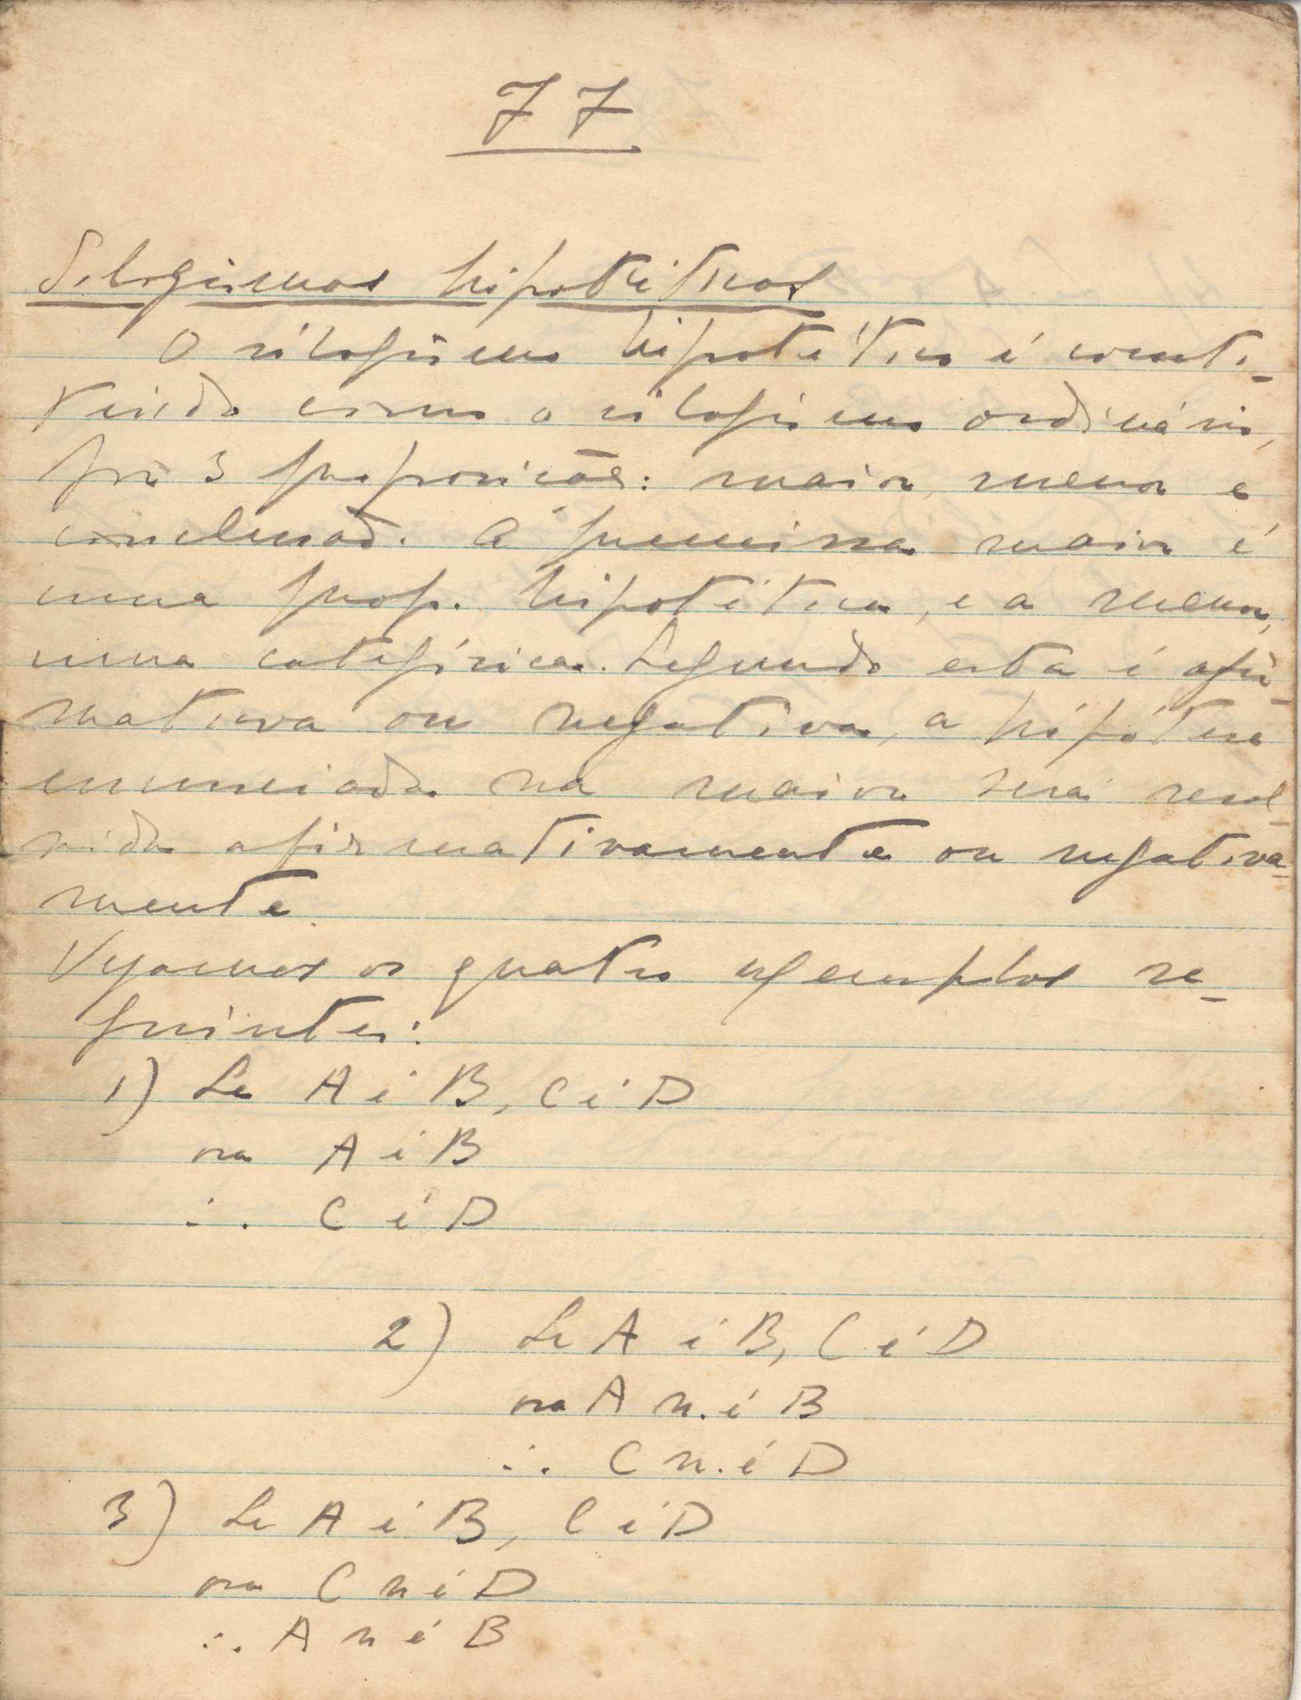 77
Silogismos hipotéticos
O silogismo hipotético é consti-
tuido como o silogismo ordinário,
por 3 proposições: maior, menor e
conclusão. A premissa maior é
uma prop. hipotética, e a menor,
uma categórica. Segundo esta é afir-
mativa ou negativa, a hipótese
enunciada na maior será resol-
vida afirmativamente ou negativa-
mente.
Vejamos os quatro exemplos se-
guintes:
1) Se A é B, C é D
ora A é B
∴ C é D
2) Se A é B, C é D
ora A n. é B
∴ C n. é D
3) Se A é B, C é D
ora C n é D
∴ A n é B